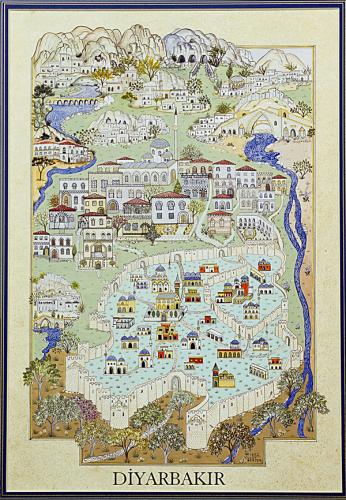 DİYARBAKIR